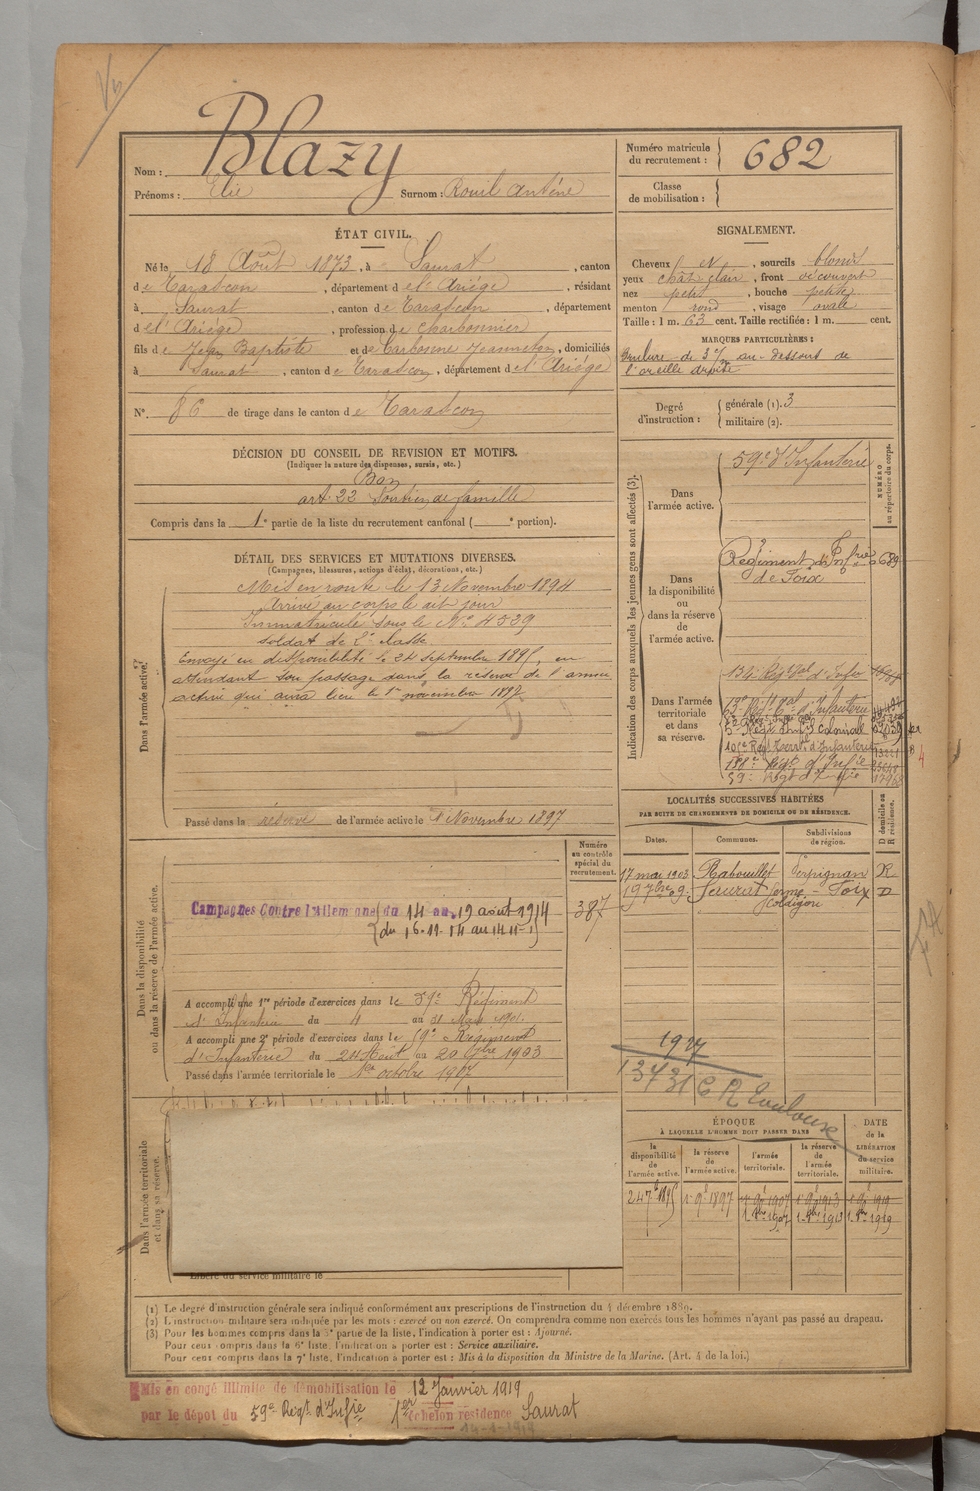 Blazy
Nom :
Prénoms : Elie Surnom : Rouil Anténe
Numéro matricule du recrutement : 682
Classe de mobilisation :
ÉTAT CIVIL.
Né le 18 Août 1873, à Saurat, canton
de Tarascon, département de l'Ariége, résidant
à Saurat, canton de Tarascon, département
de l'Ariége, profession de charbonnier
fils de Jean Baptiste et de Carbonne Jeanneton, domiciliés
à Saurat, canton de Tarascon, département de l'Ariége
N° 86 de tirage dans le canton de Tarascon
SIGNALEMENT.
Cheveux et, sourcils blond
yeux chât clair, front découvert
nez petit, bouche petite
menton rond, visage ovale
Taille : 1 m. 63 cent. Taille rectifiée : 1 m. cent.
MARQUES PARTICULIÈRES :
Brulure de 3 c/m au-dessous de
l'oreille droite
Degré d'instruction : générale (1). 3
militaire (2).
DÉCISION DU CONSEIL DE REVISION ET MOTIFS.
(Indiquer la nature des dispenses, sursis, etc.)
Bon
art 22 Soutien de famille
Compris dans la 1e partie de la liste du recrutement cantonal ( e portion).
DÉTAIL DES SERVICES ET MUTATIONS DIVERSES.
(Campagnes, blessures, actions d'éclat, décorations, etc.)
Dans l'armée active.
Mis en route le 13 Novembre 1894
Arrivé au corps le dit jour
Immatriculé sous le N° 4529
soldat de 2e classe
Envoyé en disponibilité le 24 septembre 1895, en
attendant son passage dans la réserve de l'armée
active qui aura lieu le 1er novembre 1897
Passé dans la réserve de l'armée active le 1er Novembre 1897
Indication des corps auxquels les jeunes gens sont affectés (3).
NUMÉRO au répertoire du corps.
Dans l'armée active.
59e d'Infanterie
Dans la disponibilité ou dans la réserve de l'armée active.
Régiment d'Infrie
de Foix
689
Dans l'armée territoriale et dans sa réserve.
134e Régt tal d'Infie
d'Infanterie
5e Régt Infie coloniale
Régt Territ. d'Infanterie
Régt d'Infie
59e Régt d'Infie
LOCALITÉS SUCCESSIVES HABITÉES
PAR SUITE DE CHANGEMENTS DE DOMICILE OU DE RÉSIDENCE.
Dates. Communes. Subdivisions de région. D domicile ou R résidence.
17 mai 1903 Rabouillet Perpignan R
19 7bre 09 Saurat Foix D
Dans la disponibilité ou dans la réserve de l'armée active.
Numéro au contrôle spécial du recrutement.
387
Campagnes Contre l'Allemagne du 14 au 19 août 1914
du 16-11-14 au
A accompli une 1re période d'exercices dans le 59e Régiment
d'Infanterie du 4 au 31 Mars 1901.
A accompli une 2e période d'exercices dans le Régiment
d'Infanterie du 24 Août au 20 7bre 1903
Passé dans l'armée territoriale le 1er octobre 1907
1927
C R Toulouse
Dans l'armée territoriale et dans sa réserve.
Libéré du service militaire le
ÉPOQUE
À LAQUELLE L'HOMME DOIT PASSER DANS
la disponibilité de l'armée active.
la réserve de l'armée active.
l'armée territoriale.
la réserve de l'armée territoriale.
DATE de la LIBÉRATION du service militaire.
24 7bre 1895
1er 9bre 1897
1er 9bre 1907 1er 9bre 1913 1er 9bre 1919
1er 8bre 1907 1er 8bre 1913 1er 8bre 1919
(1) Le degré d'instruction générale sera indiqué conformément aux prescriptions de l'instruction du 4 décembre 1889.
(2) L'instruction militaire sera indiquée par les mots : exercé ou non exercé. On comprendra comme non exercés tous les hommes n'ayant pas passé au drapeau.
(3) Pour les hommes compris dans la 5e partie de la liste, l'indication à porter est : Ajourné.
Pour ceux compris dans la 6e liste, l'indication à porter est : Service auxiliaire.
Pour ceux compris dans la 7e liste, l'indication à porter est : Mis à la disposition du Ministre de la Marine. (Art. 4 de la loi.)
Mis en congé illimité de démobilisation le 12 Janvier 1919
par le dépot du 59e Régt d'Infie 1er échelon résidence Saurat